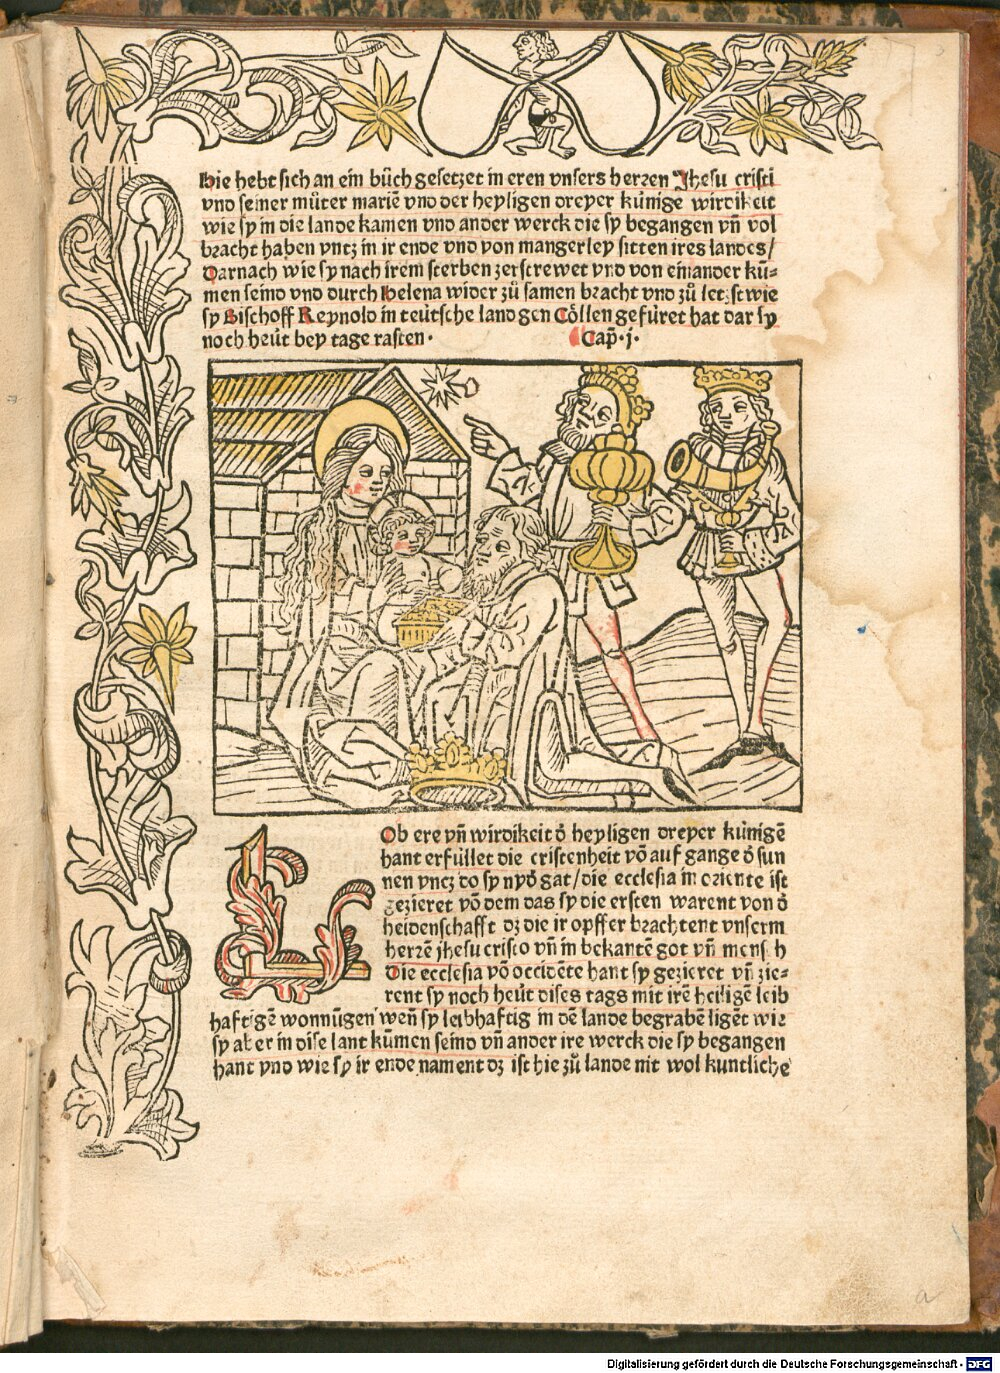 Hie hebt sich an ein bůch gesetzet in eren vnsers herren Jhesu cristi
vnd seiner můter mariē vnd der heyligen dreyer künige wirdikeit
wie sy in die lande kamen vnd ander werck die sy begangen vn̄ vol
bracht haben vntz in ir ende vnd von mangerley sitten ires landes/
Darnach wie sy nach irem sterben zerstrewet vnd von einander kü=
men seind vnd durch Helena wider zů samen bracht vnd zů letzst wie
sy Bischoff Reynold in teütsche land gen Cöllen gefüret hat dar sy
noch heüt bey tage rasten· Cap̄·j·
LOb ere vn̄ wirdikeit ð heyligen dreyer künigē
hant erfüllet die cristenheit vō auf gange ð sun
nen vncz do sy nyð gat/die ecclesia in oriente ist
gezieret vō dem das sy die ersten warent von ð
heidenschafft dz die ir opffer brachtent vnserm
herzē jhesu cristo vn̄ in bekantē got vn̄ mensch
Die ecclesia vō occidēte hant sy gezieret vn̄ zie=
rent sy noch heüt dises tags mit irē heiligē leib
haftigē wonnūgen wen̄ sy leibhaftig in dē lande begrabē ligēt wie
sy aber in dise lant kūmen seind vn̄ ander ire werck die sy begangen
hant vnd wie sy ir ende nament dz ist hie zů lande nit wol kuntliche
a
Digitalisierung gefördert durch die Deutsche Forschungsgemeinschaft - DFG